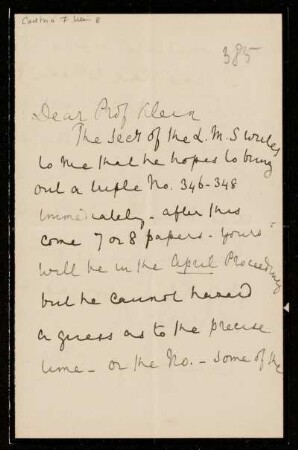 385
Dear Prof Klein
The Secy of the L. M. S writes
to me that he hopes to bring
out a triple No. 346-348
immediately - after this
come 7 or 8 papers - yours
will be in the April Proceedings
but he cannot hazard
a guess as to the precise
time - or the No. - some of the